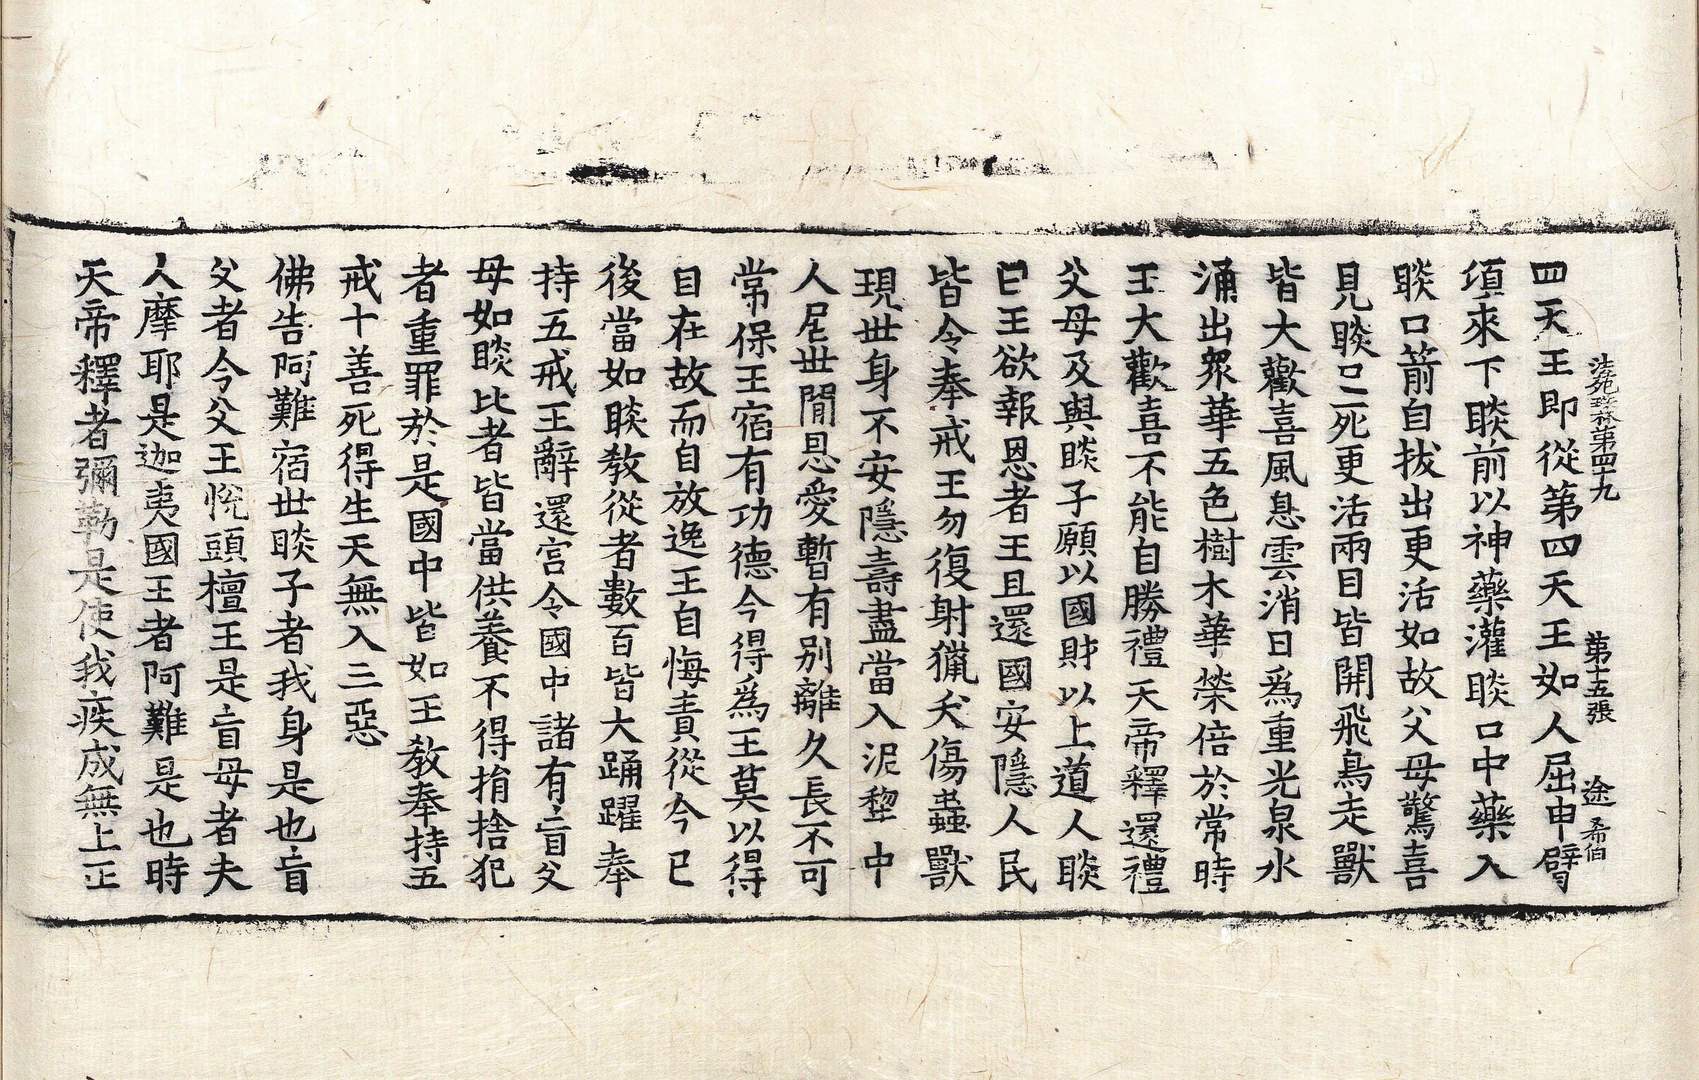 法苑珠林第四十九　第十五張　途　希伯
四天王即從第四天王如人屈申臂
項來下睒前以神藥灌睒口中藥入
睒口箭自拔出更活如故父母驚喜
見睒已死更活兩目皆開飛鳥走獸
皆大歡喜風息雲消日爲重光泉水
涌出衆華五色樹木華榮倍於常時
王大歡喜不能自勝禮天帝釋還禮
父母及與睒子願以國財以上道人睒
曰王欲報恩者王且還國安隱人民
皆令奉戒王勿復射獵夭傷蟲獸
現世身不安隱壽盡當入泥犂中
人居世間恩愛暫有別離久長不可
常保王宿有功德今得爲王莫以得
自在故而自放逸王自悔責從今已
後當如睒敎從者數百皆大踊躍奉
持五戒王辭還宮令國中諸有盲父
母如睒比者皆當供養不得捐捨犯
者重罪於是國中皆如王敎奉持五
戒十善死得生天無入三惡
佛告阿難宿世睒子者我身是也盲
父者今父王悅頭檀王是盲母者夫
人摩耶是迦夷國王者阿難是也時
天帝釋者彌勒是使我疾成無上正